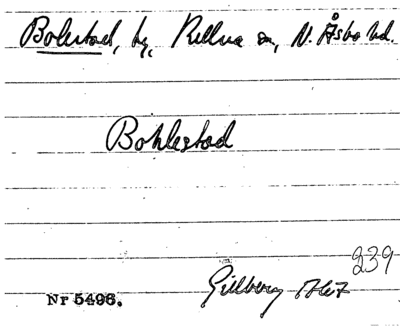 Bolestad, by, Rellna sn, N. Åsbo hd.
Bohlestad
239
Gillberg
Nr 5496.